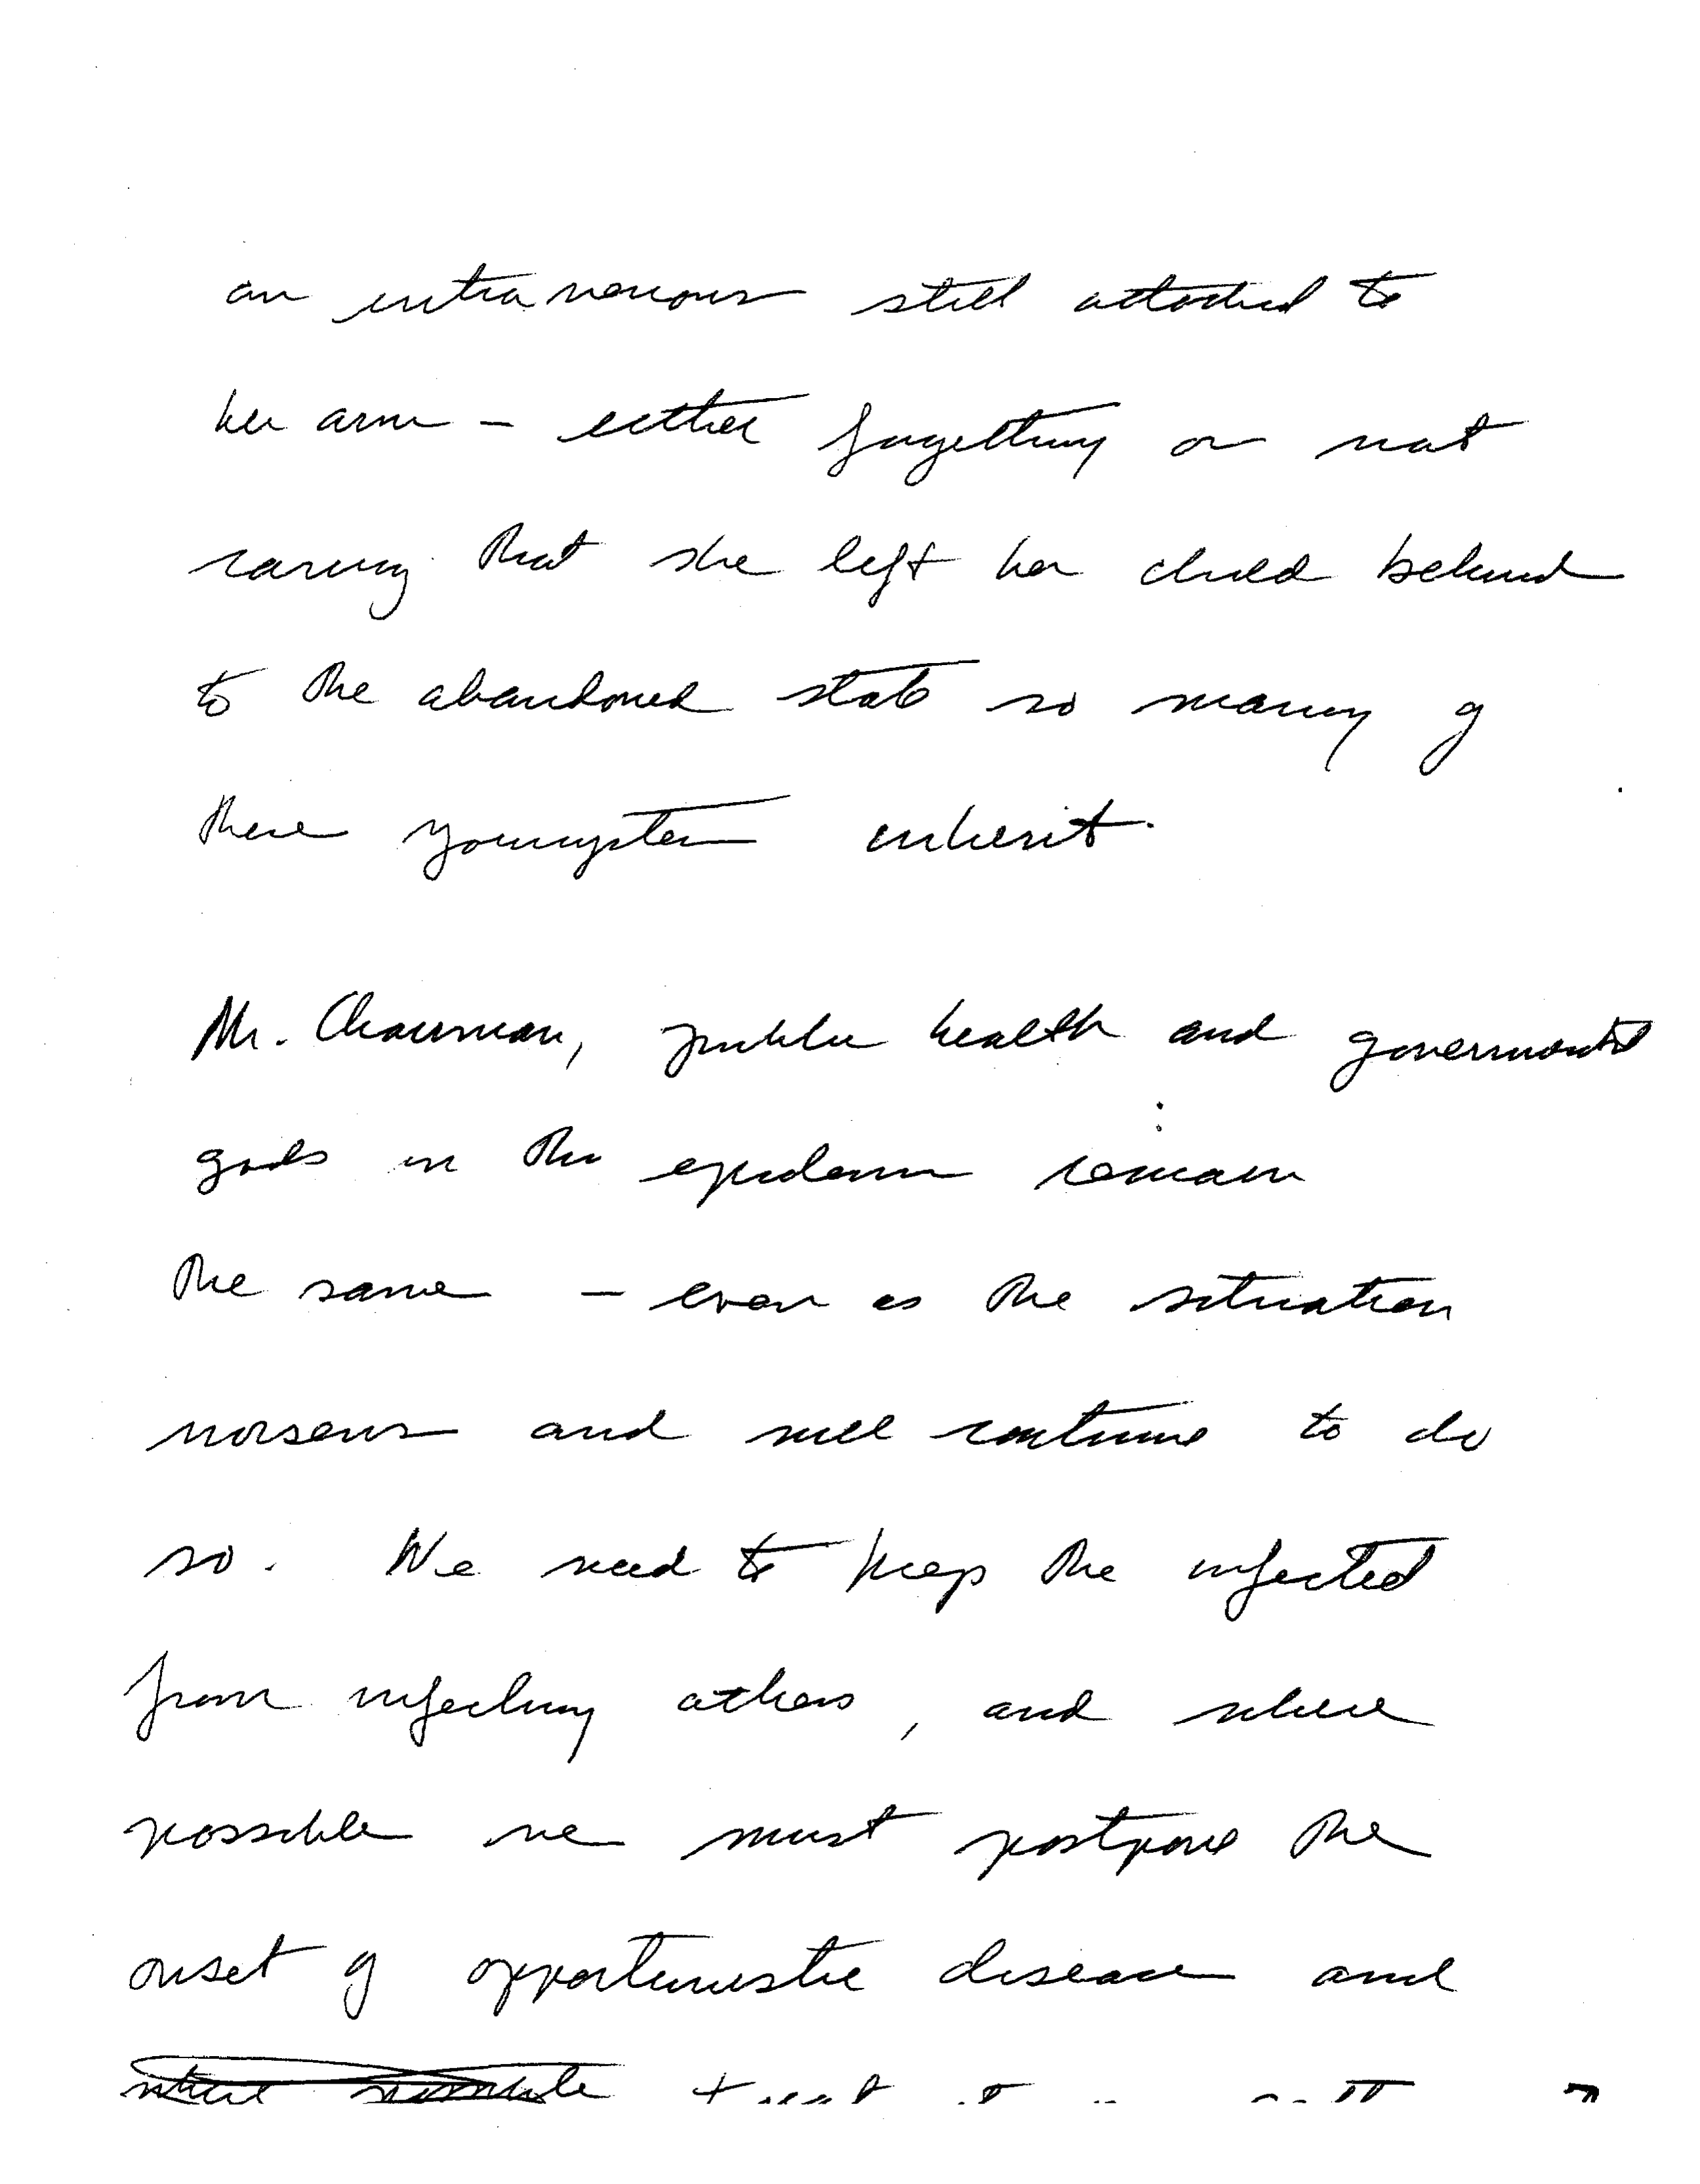 an intravenous still attached to
her arm - either forgetting or not
caring that she left her child behind
to the abandoned state so many of
these youngsters inherit.
Mr. Chairman, public health and government
goals in this epidemic remain
the same - even as the situation
worsens and will continue to do
so. We need to keep the infected
from infecting others, and where
possible we must postpone the
onset of opportunistic disease and
where possible treat it